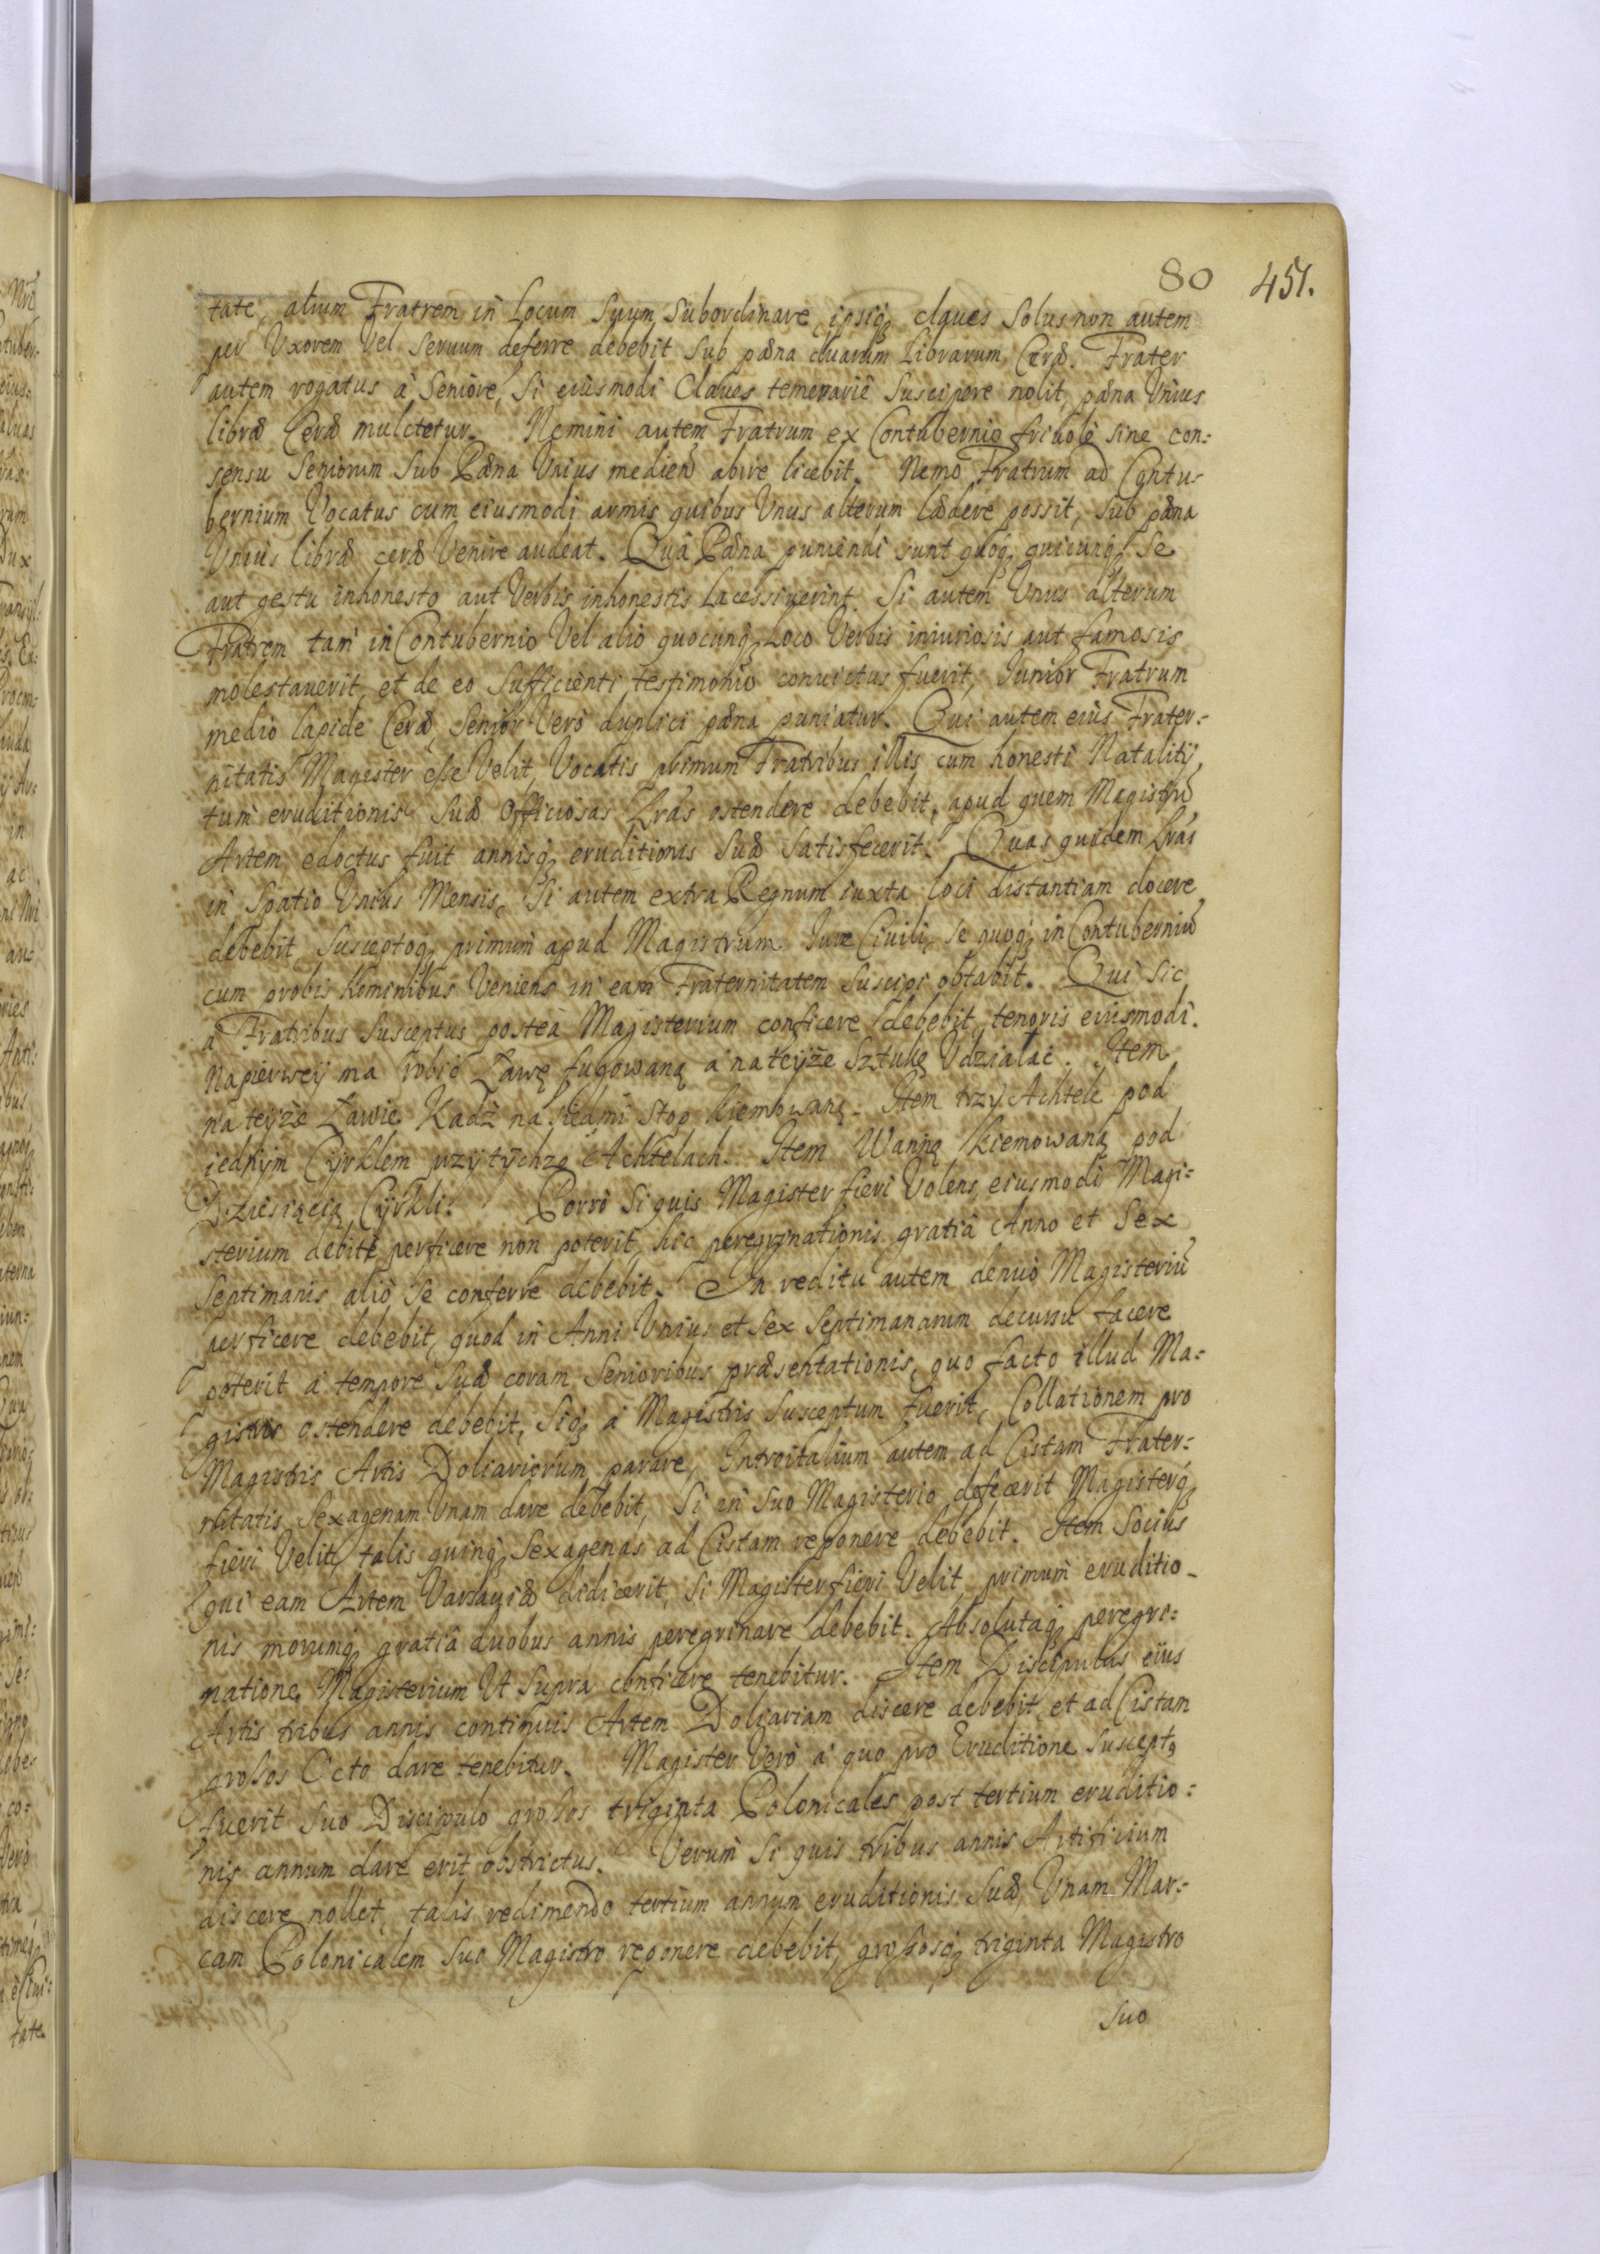 80 451.
tate, alium Fratrem in Locum Suum Subordinare, ipsiq; claues Solus non autem
per Vxorem Vel Seruum deferre debebit Sub pæna duarum Librarum Ceræ. Frater
autem rogatus à Seniore, Si eiusmodi Claues temerariè Suscipere nolit, pæna Vnius
libræ Ceræ mulctetur. Nemini autem Fratrum ex Contubernio friuolè sine con:
sensu Seniorum Sub Pæna Vnius mediæ abire licebit. Nemo Fratrum ad Contu:
bernium Vocatus cum eiusmodi armis quibus Vnus alterum lædere possit, Sub pæna
Vnius libræ ceræ Venire audeat. Quâ Pæna puniendi sunt quoq; quicunq; Se
aut gestu inhonesto aut Verbis inhonestis Lacessiuerint. Si autem Vnus alterum
Fratrem tam in Contubernio Vel alio quocunq; Loco Verbis iniuriosis aut famosis
molestauerit, et de eo Sufficienti testimonio conuictus fuerit, Junior Fratrum
medio lapide Ceræ, Senior Verò duplici pæna puniatur. Qui autem eius Frater:
nitatis Magister eße Velit, Vocatis primum Fratribus illis cum honesti Natalitij,
tum eruditionis Suæ Officiosas Lras ostendere debebit, apud quem Magistrũ
Artem edoctus fuit annisq; eruditionis Suæ Satisfecerit. Quas quidem Lras
in Spatio Vnius Mensis, Si autem extra Regnum iuxta loci distantiam docere
debebit, Susceptoq; primum apud Magistrum Jure Ciuili, Se quoq; in Contuberniũ
cum probis hominibus Veniens in eam Fraternitatem Suscipi optabit. Qui Sic
à Fratribus Susceptus posteà Magisterium conficere debebit, tenoris eiusmodi.
Napierwey ma robić Ławę fugowaną a na teyże Sztukę Vdziałać. Item
na teyże Ławie Kadź na siedmi Stop kiemowaną. Item trzy Achtele pod
iednym Cyrklem przy tychże Achtelach. Item Wannę kiemowaną pod
Dziesiącią Cyrkli. Porrò Si quis Magister fieri Volens, eiusmodi Magi:
sterium debitè perficere non poterit, hic peregrinationis gratiâ Anno et Sex
Septimanis aliò Se conferre debebit. In reditu autem denuò Magisteriũ
perficere debebit, quod in Anni Vnius et Sex Septimanarum decursu facere
poterit à tempore Suæ coram Senioribus præsentationis, quo facto illud Ma:
gistris ostendere debebit, Siq; à Magistris Susceptum fuerit, Collationem pro
Magistris Artis Doliariorum parare, Introitalium autem ad Cistam Frater:
nitatis Sexagenam Vnam dare debebit, Si in Suo Magisterio defecerit Magisterq;
fieri Velit, talis quinq; Sexagenas ad Cistam reponere debebit. Item Socius
qui eam Artem Varsauiæ didicerit, Si Magister fieri Velit, primum eruditio-
nis morumq; gratiâ duobus annis peregrinare debebit. Absolutaq; peregri:
natione, Magisterium Vt Supra conficere tenebitur. Item Discipulus eius
Artis tribus annis continuis Artem Doliariam discere debebit, et ad Cistam
großos Octo dare tenebitur. Magister Verò à quo pro Eruditione Suscept9
fuerit Suo Discipulo großos triginta Polonicales post tertium eruditio:
nis annum dare erit obstrictus. Verùm Si quis tribus annis Artificium
discere nollet, talis redimendo tertium annum eruditionis Suæ, Vnam Mar:
cam Polonicalem Suo Magistro reponere debebit, großosq; triginta Magistro
Suo